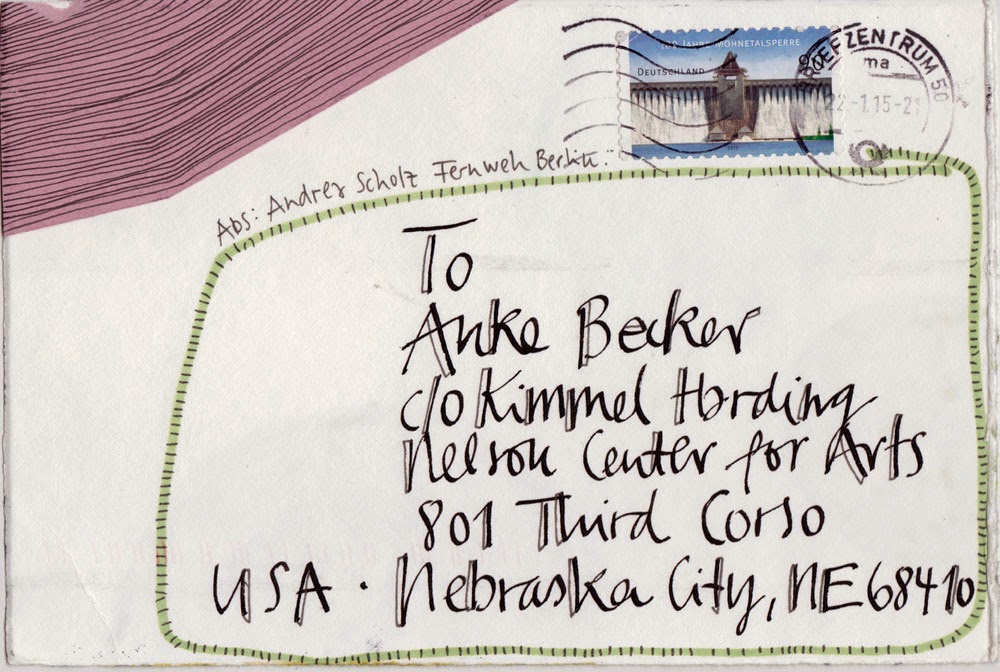 100 JAHRE MÖHNETALSPERRE
DEUTSCHLAND
BRIEFZENTRUM 50
ma
22.-1.15-21
Abs: Andrea Scholz Fernweh Berlin
To
Anke Becker
c/o Kimmel Harding
Nelson Center for Arts
801 Third Corso
USA · Nebraska City, NE 68410